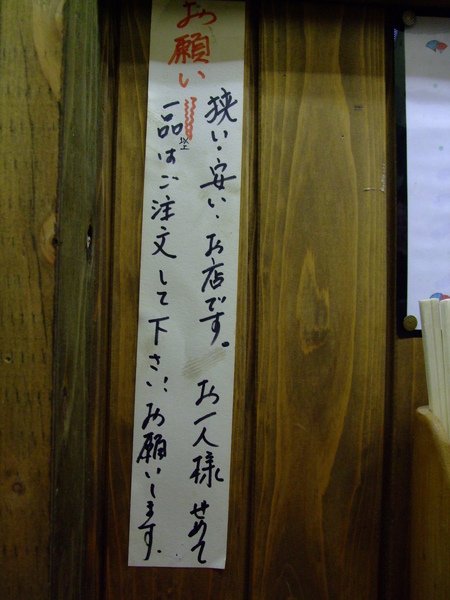 お願い
狭い・安い、お店です。お一人様せめて
一品以上はご注文して下さい、お願いします。